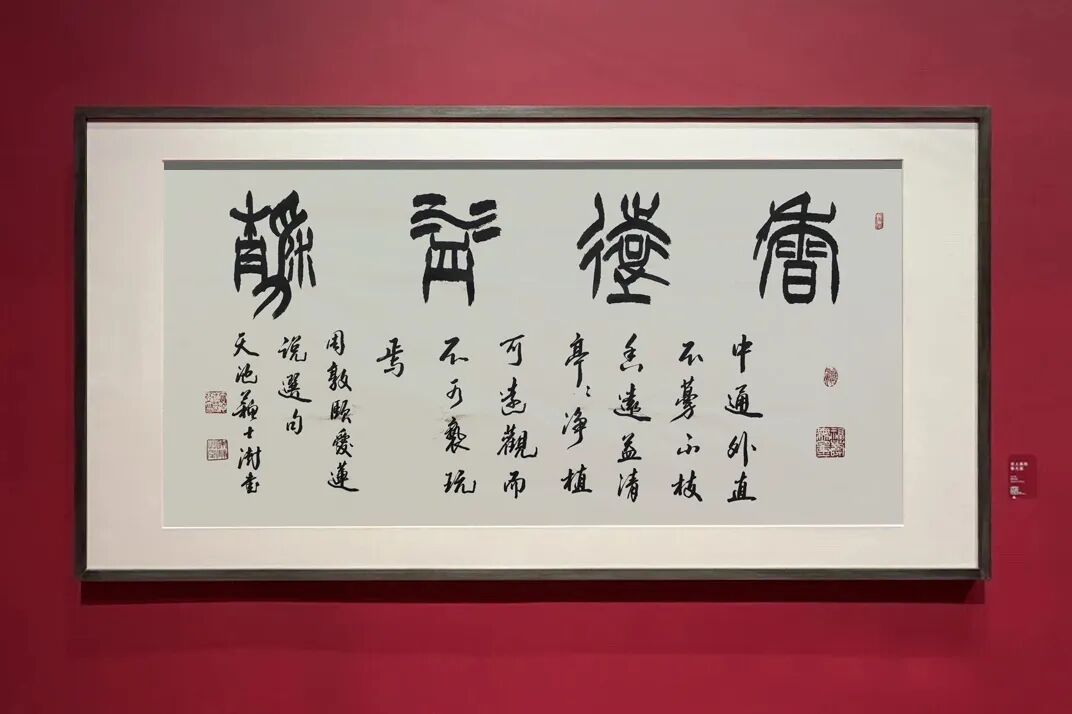 香遠益靜
中通外直
不蔓不枝
香遠益清
亭〻净植
可遠觀而
不可褻玩
焉
周敦頤愛蓮
説選句
天池蘇士澍書